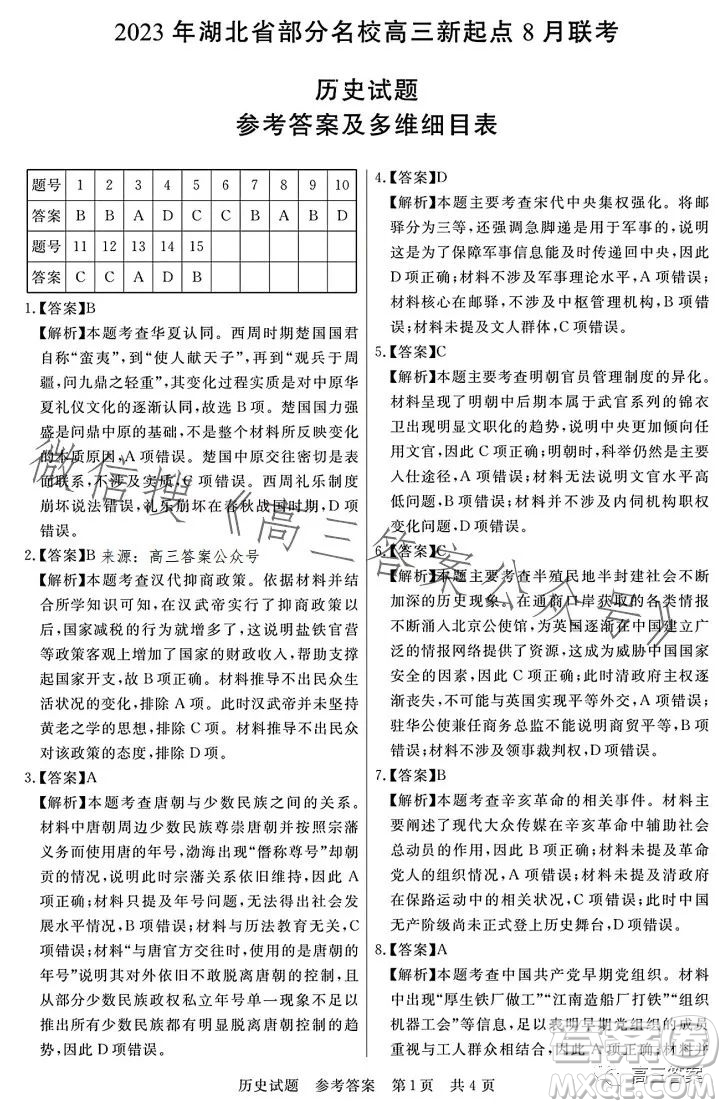 2023 年湖北省部分名校高三新起点 8 月联考
历史试题
参考答案及多维细目表
题号 1 2 3 4 5 6 7 8 9 10
答案 B B A D C C B A B D
题号 11 12 13 14 15
答案 C C A C C
1.【答案】B
【解析】本题考查华夏认同。西周时期楚国国君
自称“蛮夷”,到“使人献天子”,再到“观兵于周
疆,问九鼎之轻重”,其变化过程实质是对中原华
夏礼仪文化的逐渐认同,故选 B 项。楚国国力强
盛是问鼎中原的基础,不是整个材料所反映变化
的本质原因,A 项错误。楚国中原交往密切是表
面联系,不涉及实质,C 项错误。西周礼乐制度
崩坏说法错误,礼乐崩坏在春秋战国时期,D 项
错误。
2.【答案】B 来源:高三答案公众号
【解析】本题考查汉代抑商政策。依据材料并结
合所学知识可知,在汉武帝实行了抑商政策以
后,国家减税的行为就增多了,这说明盐铁官营
等政策客观上增加了国家的财政收入,民众支撑
起国家开支,故选 B 项。材料推导不出民众生
活状况的变化,排除 A 项。此时汉武帝并未坚持
黄老之学的思想,排除 C 项。材料推导不出民众
对该政策的态度,排除 D 项。
3.【答案】A
【解析】本题考查唐朝与少数民族之间的关系。
材料中唐朝周边少数民族尊崇唐朝并履行宗藩
义务而使用唐的年号,渤海出现“僭称尊号”却朝
贡的情况,说明此时宗藩关系依旧维持,因此 A
项正确;材料只提及年号,无法得出社会经济发
展的结论,B 项错误;材料与历法教育无关,C 项
错误;材料“与唐官方交往时,则使用的是唐朝的
年号”说明其对外表现依附唐朝的控制,且从部
分少数民族政权私立年号现象看推不出普遍性
推出所有少数民族都呈现出摆脱朝廷控制的趋
势,因此 D 项错误。
4.【答案】D
【解析】本题主要考查宋代中央集权强化。将邮
驿分为三等,还强调急脚递是用于军事的,说明
这是为了保障军事信息能及时传回中央,因此
D 项正确;材料不涉及军事理论水平,A 项错误;
材料核心在邮驿,不涉及中枢管理机构,B 项错
误;材料未提及文人群体,C 项错误。
5.【答案】C
【解析】本题主要考查明朝官员管理制度的异化。
材料呈现了明朝中后期本属于武官系列的锦衣
卫出现明显文职化的趋势,说明中央更加倾向任
用文官,因此 C 项正确;明朝时,科举仍然是主要
入仕途径,A 项错误;材料无法说明文官水平高
于其他官员,B 项错误;材料不涉及内伺机构职
权变化问题,D 项错误。
6.【答案】C
【解析】本题主要考查半殖民地半封建社会不断
加深的历史现象。在通商口岸获取的各类情报
不断涌入北京公使馆,为英国逐渐在中国建立广
泛的情报网络提供了资源,这成为威胁中国国家
安全的因素,因此 C 项正确;此时清政府主权逐
渐丧失,不可能与英国实现平等外交,A 项错误;
驻华公使兼任商务总监不能说明商贸平等,B 项
错误;材料不涉及领事裁判权,D 项错误。
7.【答案】B
【解析】本题考查辛亥革命的相关事件。材料主
要阐述了现代大众传媒在辛亥革命中辅助社会
动员的作用,因此 B 项正确;材料未涉及革命
党人的宣传,A 项错误;材料未说明清政府官员
在保路运动中的相关情况,C 项错误;此时中国
无产阶级尚未正式登上历史舞台,D 项错误。
8.【答案】A
【解析】本题考查中国共产党早期党组织。材料
中出现“厚生铁厂做工”“江南造船厂打铁”“组织
机器工会”等信息,足以表明早期党组织的成员
重视与工人群体的联系,因此 A 项正确;
历史试题 参考答案 第 1 页 共 4 页
微信搜《高三答案公众号》
高三答案